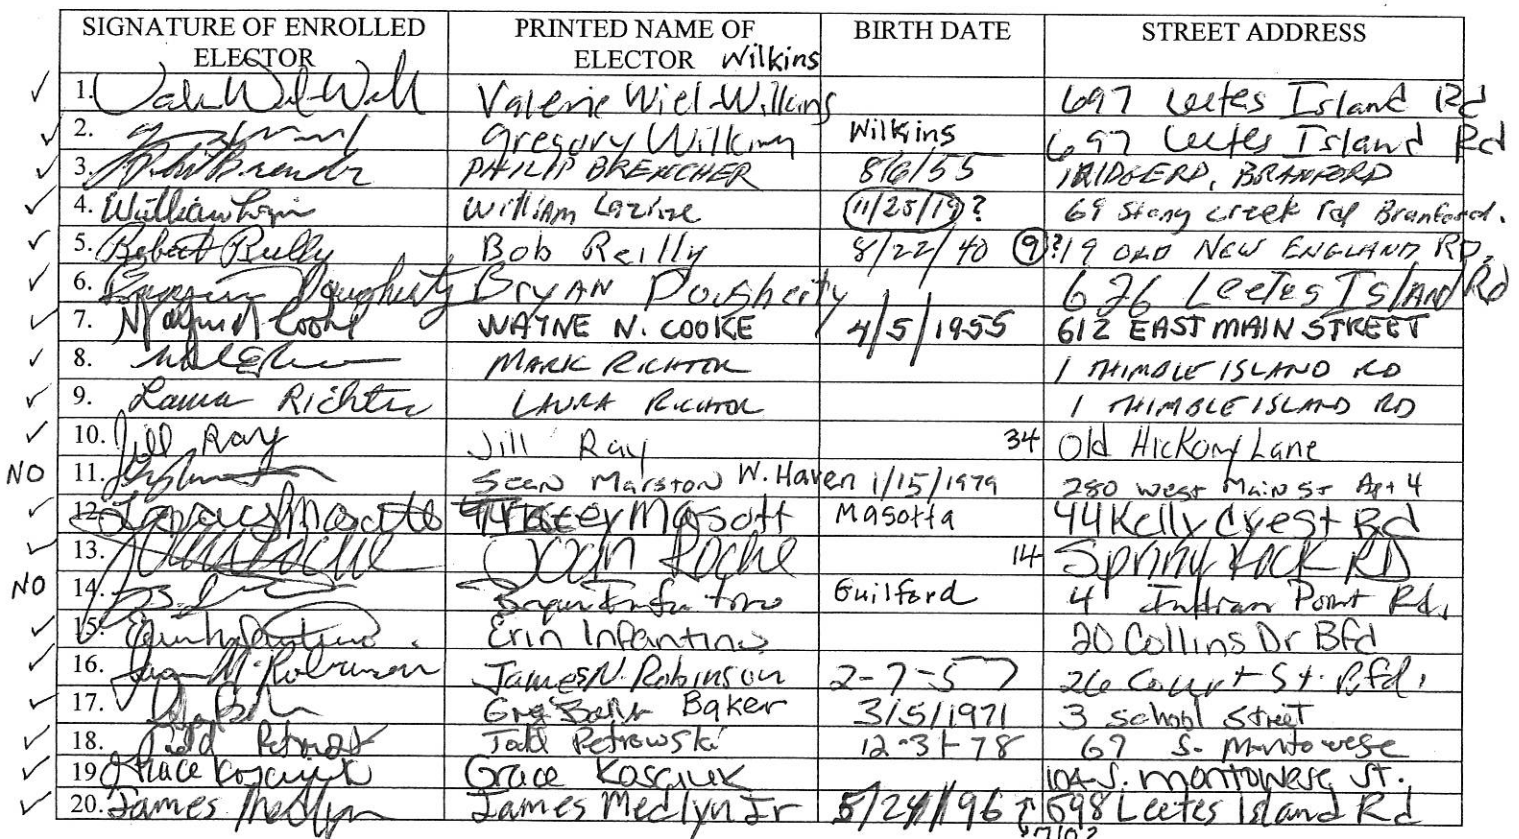 SIGNATURE OF ENROLLED ELECTOR PRINTED NAME OF ELECTOR BIRTH DATE STREET ADDRESS
Wilkins
✓ 1. Valerie Wiel-Wilkins 697 Leetes Island Rd
✓ 2. Gregory Wilkins Wilkins 697 Leetes Island Rd
✓ 3. PHILIP BRENCHER 8/6/55 RIDGE RD, BRANFORD
✓ 4. William William 11/25/19? 69 Stony Creek Rd Branford.
✓ 5. Robert Reilly Bob Reilly 8/22/40 9? 19 OLD NEW ENGLAND RD.
✓ 6. Dougherty Bryan Dougherty 626 Leetes Island Rd
✓ 7. Cooke WAYNE N. COOKE 4/5/1955 612 EAST MAIN STREET
✓ 8. MARK RICHTER 1 THIMBLE ISLAND RD
✓ 9. Laura Richter LAURA RICHTER 1 THIMBLE ISLAND RD
✓ 10. Jill Ray Jill Ray 34 Old Hickory Lane
NO 11. Sean Marston W. Haven 1/15/1979 280 West Main St Apt 4
12. Masotta 44 Kelly Crest Rd
✓ 13. Joan Roche 14 Spring Rock RD
NO 14. Guilford 4 Indian Point Rd.
✓ 15. Erin Infantino 20 Collins Dr Bfd
✓ 16. Robinson James N. Robinson 2-7-57 26 Court St. Bfd.
✓ 17. Greg Baker 3/5/1971 3 School Street
✓ 18. Todd Petrowski 12-31-78 69 S. Montowese
✓ 19 Grace Grace 104 S. Montowese St.
✓ 20. James Medlyn James Medlyn Jr 5/24/96 698 Leetes Island Rd